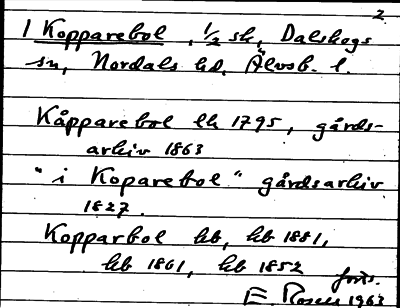 2
1 Kopparebol, 1/2 sk, Dalskogs
sn, Nordals hd. Älvsb. l.
Kåpparebol lh 1795, gårds-
arkiv 1863
"i Koparebol" gårdsarkiv
1827.
Kopparbol hb, hb 1881,
hb 1861, hb 1852
forts.
E. Rosell 1963